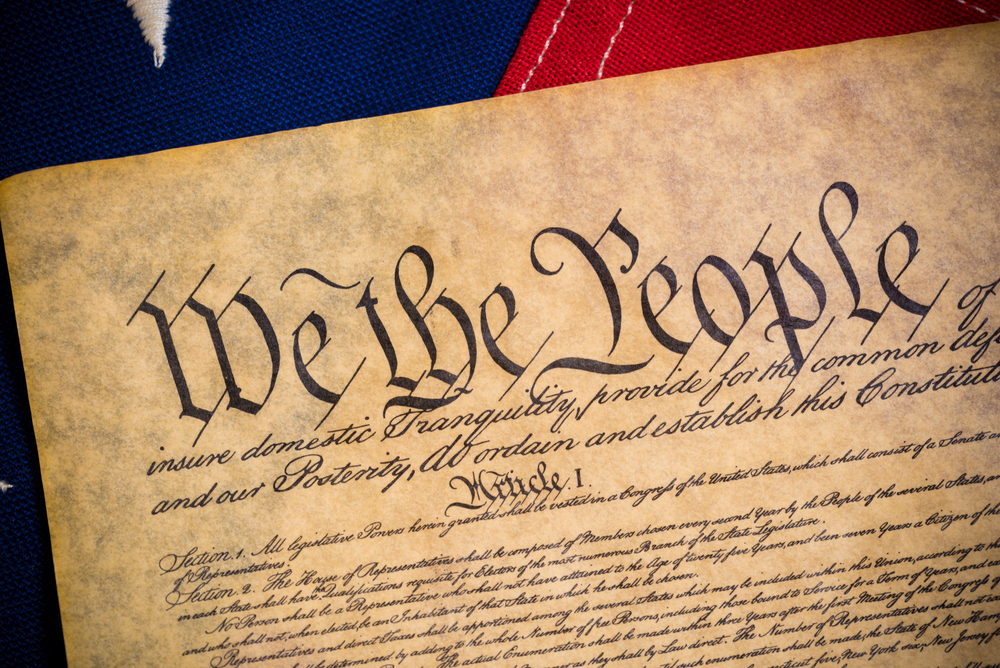 We the People of
insure domestic Tranquility, provide for the common def
and our Posterity, do ordain and establish this Constitut
Article. I.
Section. 1. All legislative Powers herein granted shall be vested in a Congress of the United States, which shall consist of a Senate an
of Representatives.
Section. 2. The House of Representatives shall be composed of Members chosen every second Year by the People of the several States, an
in each State shall have the Qualifications requisite for Electors of the most numerous Branch of the State Legislature.
No Person shall be a Representative who shall not have attained to the Age of twenty five Years, and been seven Years a Citizen of the
and who shall not, when elected, be an Inhabitant of that State in which he shall be chosen.
Representatives and direct Taxes shall be apportioned among the several States which may be included within this Union, according to the
be determined by adding to the whole Number of free Persons, including those bound to Service for a Term of Years, and ex
The actual Enumeration shall be made within three Years after the first Meeting of the Congress of
as they shall by Law direct. The Number of Representatives shall not
such enumeration shall be made, the State of New Hamp
five, New York six, New Jersey